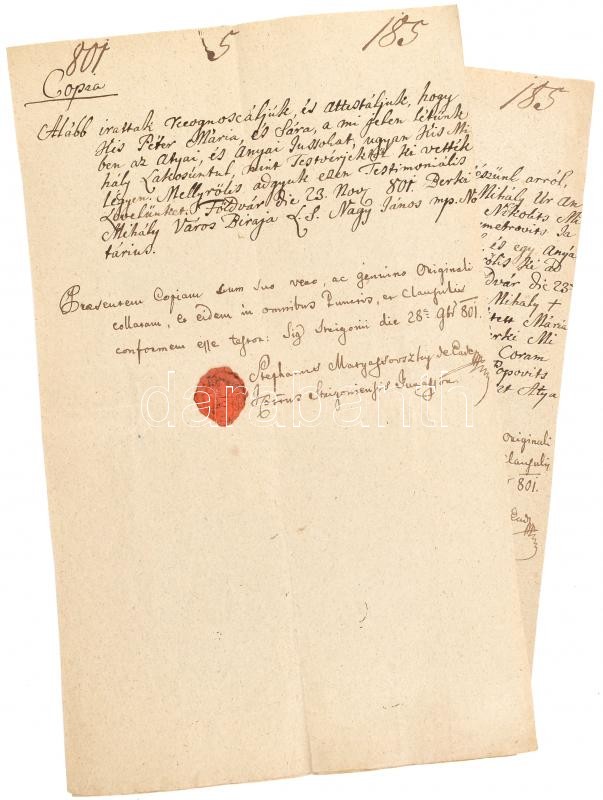 801 5 185
Copia
Alább irattak recognoscáljuk, és attestáljuk, hogy
Kis Péter Mária, és Sára, a mi jelen létünk
ben az Atyai, és Anyai Jussokat, ugyan Kis Mi
hály Lakosuntul, mint Testvérjektől ki vették
légyen. Mellyrőlis adgyuk ezen Testimoniális
Levelünket. Földvár die 23. Nov. 801 Berki
Mihály Város Biraja L.S. Nagy János mp. No
tárius.
Praesentem Copiam cum suo vero, ac genuino Originali
collatam, et eidem in omnibus Punctis, et Clausulis
conformem esse testor: Sig Strigonii die 28ª 9bris 801.
Stephanus Matyasovszky de Eadem
Strigoniensis Jurassor
darabanth
185
észünl arról,
Mihály Ur An
Nikolits Mi
metrovits Ja
és egy Anya
rőlis ki ad
dvár die 23ª
Mihály +
Mária
Berki Mi
Coram
Popovits
et Atya
Originali
Clausulis
801.
Eadem